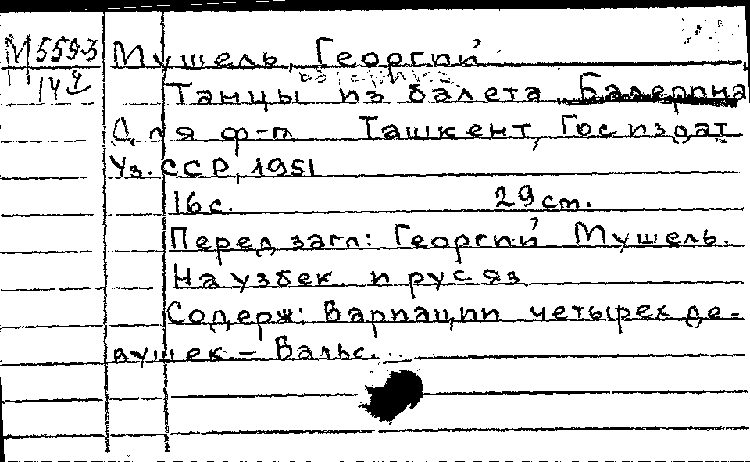 М5593 Мушель, Георгий
142 Танцы из балета Балерина
Для ф-п Ташкент, Госиздат
Уз. ССР, 1951
16 с. 29 ст.
Перед загл: Георгий Мушель.
На узбек и рус яз
Содерж: Вариации четырех де-
вушек - Вальс.